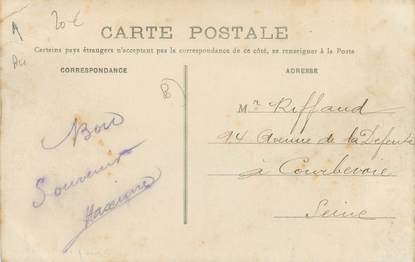 A 20€
CARTE POSTALE
Certains pays étrangers n'acceptant pas la correspondance de ce côté, se renseigner à la Poste
CORRESPONDANCE
ADRESSE
8
Bon
Souvenir
Maxime
Mr Riffaud
94 Avenue de la Défense
à Courbevoie
Seine